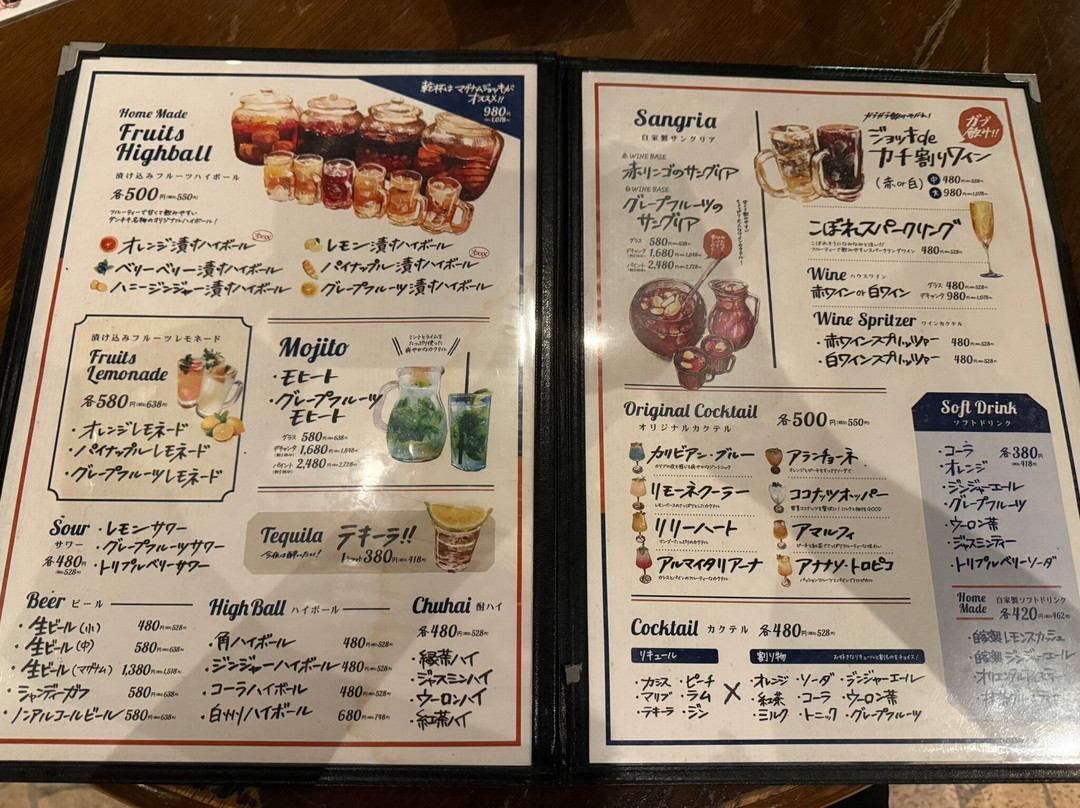 Home Made
Fruits
Highball
漬け込みフルーツハイボール
各500円(税込550円)
フルーティーで甘くて飲みやすい
乾杯は マグナムジョッキが
オススメ!!
980円
オレンジ漬けハイボール
レモン漬けハイボール
ベリーベリー漬けハイボール
パイナップル漬けハイボール
ハニージンジャー漬けハイボール
グレープフルーツ漬けハイボール
漬け込みフルーツレモネード
Fruits
Lemonade
各580円(税込638円)
・オレンジレモネード
・パイナップルレモネード
・グレープフルーツレモネード
Mojito
ミントとライムを
たっぷり使った
爽やかなカクテル
・モヒート
・グレープフルーツ
モヒート
グラス 580円(税込638円)
デキャンタ 1,680円(税込1,848円)
2,480円(税込2,728円)
Sour
サワー
各480円
(税込528円)
・レモンサワー
・グレープフルーツサワー
・トリプルベリーサワー
Tequila
テキーラ!!
1ショット380円(税込418円)
Beer ビール
・生ビール(小) 480円(税込528円)
・生ビール(中) 580円(税込638円)
・生ビール(マグナム) 1,380円(税込1,518円)
・シャンディーガフ 580円(税込638円)
・ノンアルコールビール 580円(税込638円)
HighBall ハイボール
・角ハイボール 480円(税込528円)
・ジンジャーハイボール 480円(税込528円)
・コーラハイボール 480円(税込528円)
・白州ハイボール 680円(税込748円)
Chuhai 酎ハイ
各480円(税込528円)
・緑茶ハイ
・ジャスミンハイ
・ウーロンハイ
・紅茶ハイ
Sangria
自家製サングリア
赤 WINE BASE
赤リンゴのサングリア
白 WINE BASE
グレープフルーツの
サングリア
グラス 580円(税込638円)
デキャンタ 1,680円(税込1,848円)
2,480円(税込2,728円)
ジョッキde
カチ割りワイン
ガブ
飲み!!
(赤 or 白)
中 480円(税込528円)
大 980円(税込1,078円)
こぼれスパークリング
480円(税込528円)
Wine ハウスワイン
赤ワイン or 白ワイン
グラス 480円(税込528円)
デキャンタ 980円(税込1,078円)
Wine Spritzer ワインカクテル
・赤ワインスプリッツァー 480円(税込528円)
・白ワインスプリッツァー 480円(税込528円)
Original Cocktail
オリジナルカクテル
各500円(税込550円)
カリビアン・ブルー
アランチョーネ
リモーネクーラー
ココナッツオッパー
リリーハート
アマルフィ
アルマイタリアーナ
アナナソ・トロピコ
Soft Drink
ソフトドリンク
各380円
(税込418円)
・コーラ
・オレンジ
・ジンジャーエール
・グレープフルーツ
・ウーロン茶
・ジャスミンティー
・トリプルベリーソーダ
Home
Made
自家製ソフトドリンク
各420円(税込462円)
・自家製レモンスカッシュ
・自家製ジンジャーエール
Cocktail カクテル 各480円(税込528円)
リキュール
・カシス ・ピーチ
・マリブ ・ラム
・テキーラ ・ジン
×
割り物
お好きなリキュールと割りものをチョイス!
・オレンジ ・ソーダ ・ジンジャーエール
・紅茶 ・コーラ ・ウーロン茶
・ミルク ・トニック ・グレープフルーツ